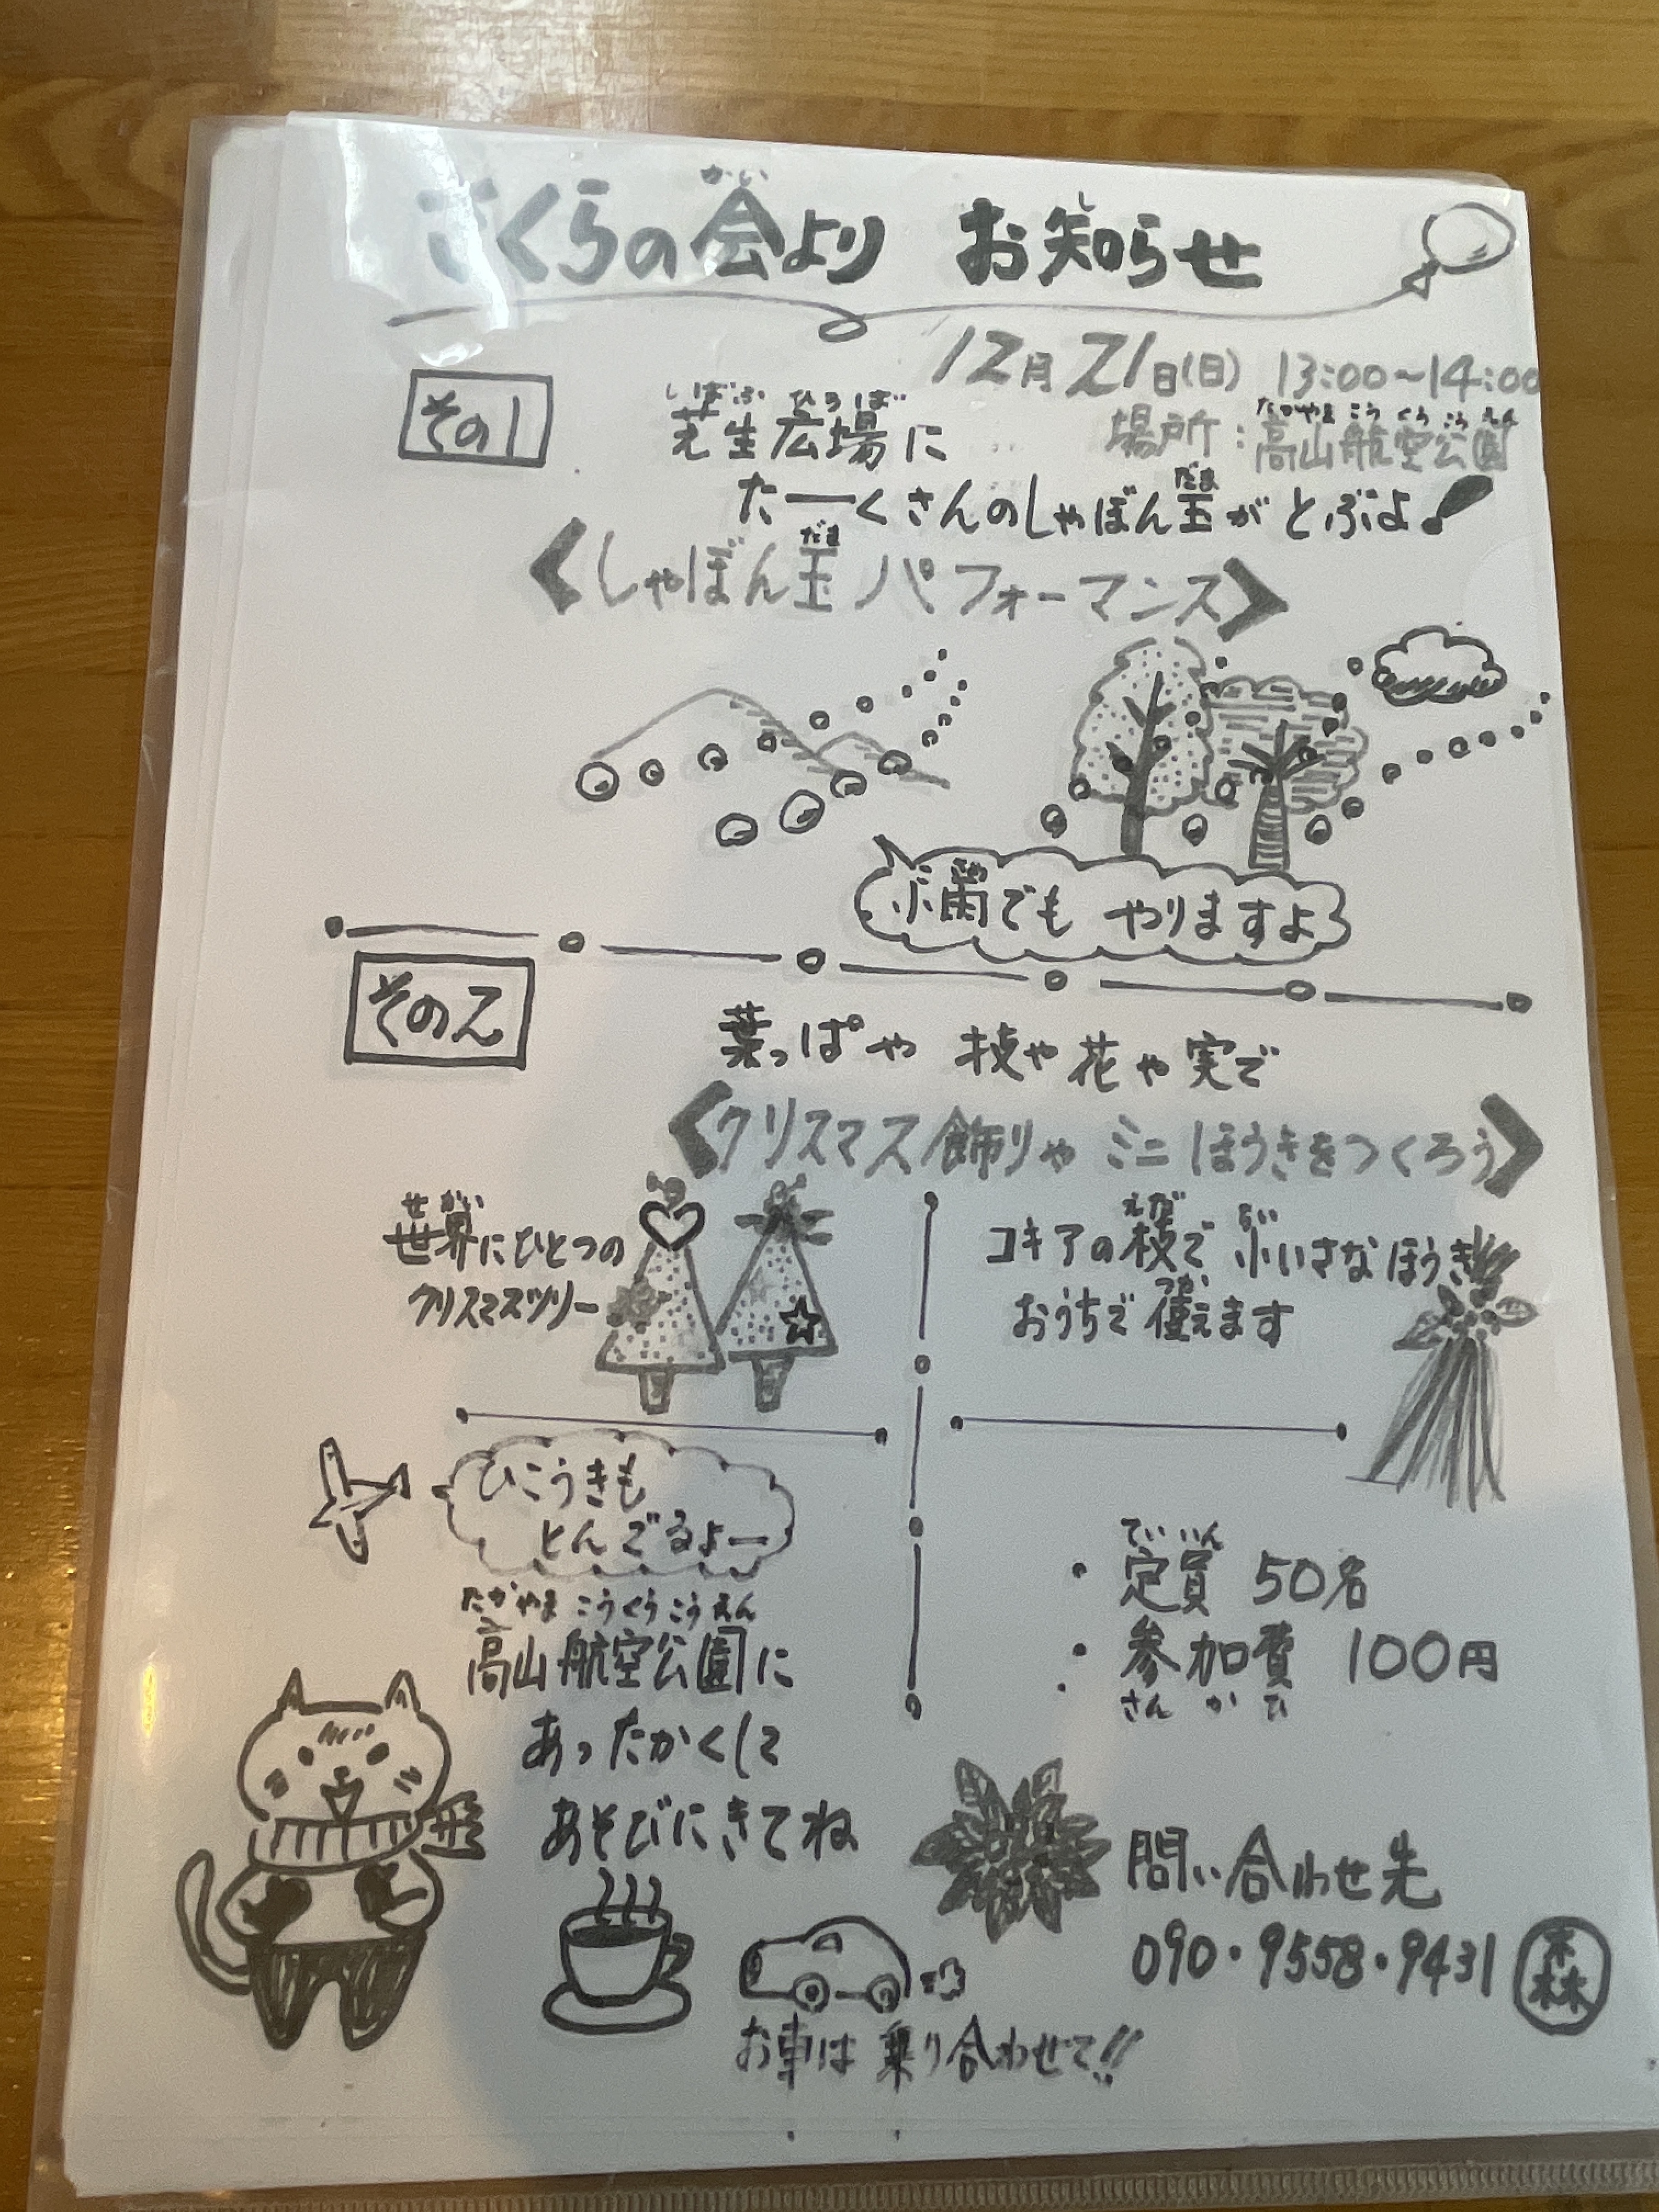 さくらの会より お知らせ
かい し
12月21日(日) 13:00~14:00
その1
しばふ ひろば
芝生広場に
たかやま こうくうこうえん
場所:高山航空公園
だま
たーくさんのしゃぼん玉がとぶよ!
だま
<しゃぼん玉パフォーマンス>
小雨でも やりますよ
その2
葉っぱや 枝や花や実で
<クリスマス飾りや ミニほうきをつくろう>
せかい
世界にひとつの
クリスマスツリー
えだ ちい
コキアの枝で 小いさなほうき
つか
おうちで使えます
ひこうきも
とんでるよー
たかやま こうくうこうえん
高山航空公園に
あったかくして
あそびにきてね
ていいん
・定員 50名
・参加費 100円
さんかひ
問い合わせ先
090・9558・9431 森
お車は 乗り合わせて!!